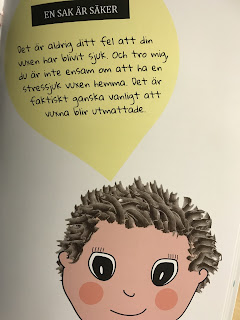 EN SAK ÄR SÄKER
Det är aldrig ditt fel att din
vuxen har blivit sjuk. Och tro mig,
du är inte ensam om att ha en
stressjuk vuxen hemma. Det är
faktiskt ganska vanligt att
vuxna blir utmattade.